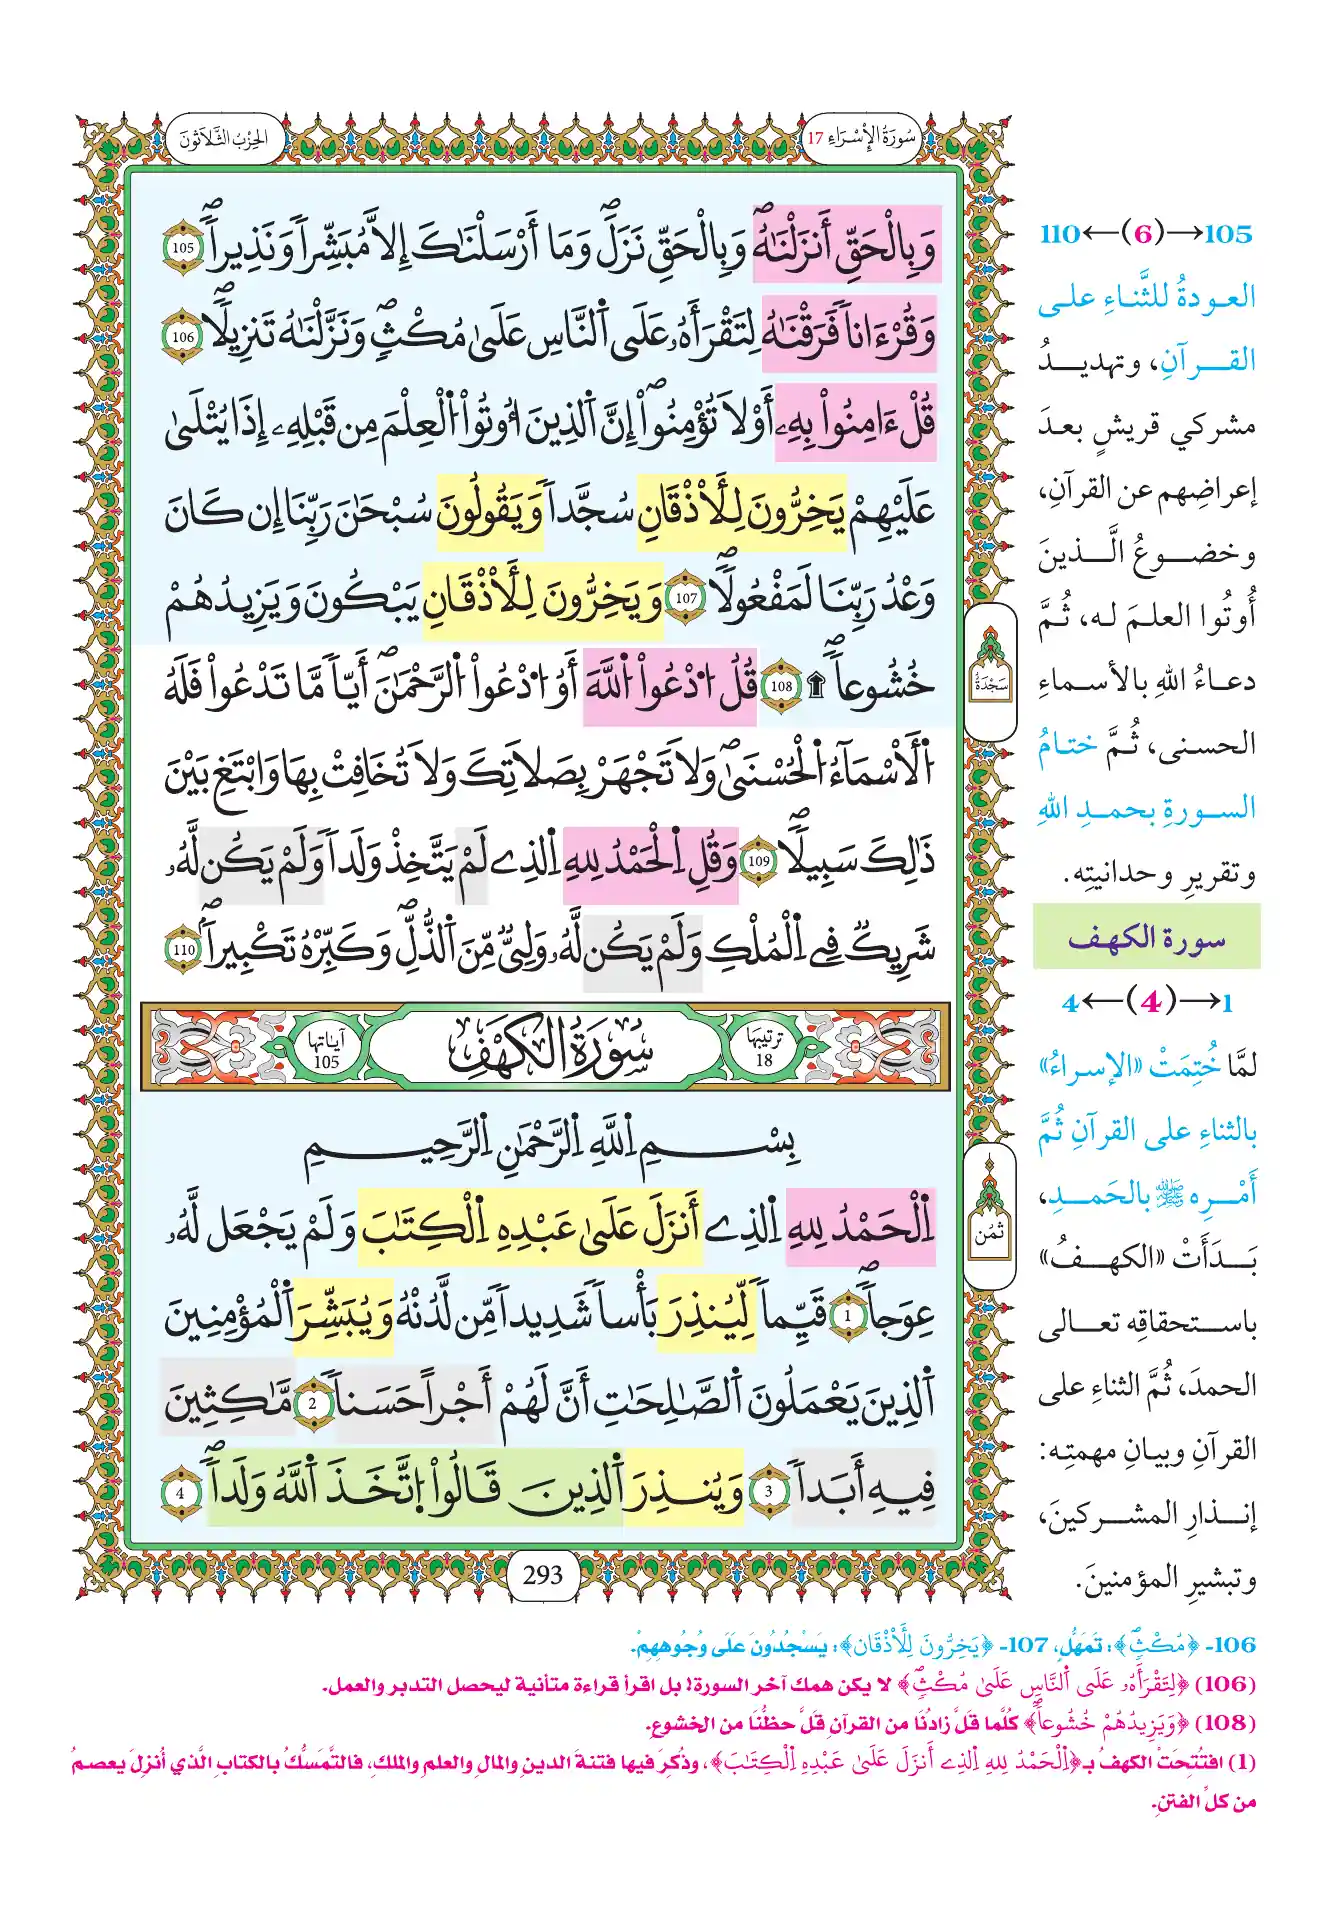 سُورَةُ الإِسْرَاءِ 17
الحِزْبُ الثَّلَاثُونَ
وَبِالْحَقِّ أَنزَلْنَٰهُ وَبِالْحَقِّ نَزَلَ وَمَا أَرْسَلْنَٰكَ إِلَّا مُبَشِّراً وَنَذِيراً 105
وَقُرْءَاناً فَرَقْنَٰهُ لِتَقْرَأَهُۥ عَلَى اَ۬لنَّاسِ عَلَىٰ مُكْثٍ وَنَزَّلْنَٰهُ تَنزِيلًا 106
قُلْ ءَامِنُواْ بِهِۦ أَوْ لَا تُؤْمِنُواْ إِنَّ اَ۬لذِينَ أُوتُواْ اُ۬لْعِلْمَ مِن قَبْلِهِۦ إِذَا يُتْلَىٰ
عَلَيْهِمْ يَخِرُّونَ لِلْأَذْقَانِ سُجَّداً وَيَقُولُونَ سُبْحَٰنَ رَبِّنَا إِن كَانَ
وَعْدُ رَبِّنَا لَمَفْعُولًا 107 وَيَخِرُّونَ لِلْأَذْقَانِ يَبْكُونَ وَيَزِيدُهُمْ
خُشُوعاً ۩ 108 قُلُ اُ۟دْعُواْ اُ۬للَّهَ أَوُ اُ۟دْعُواْ اُ۬لرَّحْمَٰنَ أَيّاً مَّا تَدْعُواْ فَلَهُ
اُ۬لْأَسْمَآءُ اُ۬لْحُسْنَىٰ وَلَا تَجْهَرْ بِصَلَاتِكَ وَلَا تُخَافِتْ بِهَا وَابْتَغِ بَيْنَ
ذَٰلِكَ سَبِيلًا 109 وَقُلِ اِ۬لْحَمْدُ لِلهِ اِ۬لذِے لَمْ يَتَّخِذْ وَلَداً وَلَمْ يَكُن لَّهُۥ
شَرِيكٌ فِے اِ۬لْمُلْكِ وَلَمْ يَكُن لَّهُۥ وَلِيٌّ مِّنَ اَ۬لذُّلِّ وَكَبِّرْهُ تَكْبِيراً 110
ترتيبها 18
سُورَةُ الكَهْفِ
آياتها 105
بِسْمِ اِ۬للَّهِ اِ۬لرَّحْمَٰنِ اِ۬لرَّحِيمِ
اِ۬لْحَمْدُ لِلهِ اِ۬لذِے أَنزَلَ عَلَىٰ عَبْدِهِ اِ۬لْكِتَٰبَ وَلَمْ يَجْعَل لَّهُۥ
عِوَجاً 1 قَيِّماً لِّيُنذِرَ بَأْساً شَدِيداً مِّن لَّدُنْهُ وَيُبَشِّرَ اَ۬لْمُؤْمِنِينَ
اَ۬لذِينَ يَعْمَلُونَ اَ۬لصَّٰلِحَٰتِ أَنَّ لَهُمْ أَجْراً حَسَناً 2 مَّٰكِثِينَ
فِيهِ أَبَداً 3 وَيُنذِرَ اَ۬لذِينَ قَالُواْ اُ۪تَّخَذَ اَ۬للَّهُ وَلَداً 4
سَجْدَةُ
ثُمُن
293
105→(6)←110
العودةُ للثَّناءِ على
القرآنِ، وتهديدُ
مشركي قريشٍ بعدَ
إعراضِهم عن القرآنِ،
وخضوعُ الَّذينَ
أُوتُوا العلمَ له، ثُمَّ
دعاءُ اللهِ بالأسماءِ
الحسنى، ثُمَّ ختامُ
السورةِ بحمدِ اللهِ
وتقريرِ وحدانيتِه.
سورة الكهف
1→(4)←4
لمَّا خُتِمَتْ «الإسراءُ»
بالثناءِ على القرآنِ ثُمَّ
أَمْرِه ﷺ بالحَمدِ،
بَدَأَتْ «الكهفُ»
باستحقاقِه تعالى
الحمدَ، ثُمَّ الثناءِ على
القرآنِ وبيانِ مهمتِه:
إنذارِ المشركينَ،
وتبشيرِ المؤمنينَ.
106- ﴿مُكْثٍ﴾: تَمَهُّلٍ، 107- ﴿يَخِرُّونَ لِلْأَذْقَانِ﴾: يَسْجُدُونَ عَلَى وُجُوهِهِمْ.
(106) ﴿لِتَقْرَأَهُۥ عَلَى اَ۬لنَّاسِ عَلَىٰ مُكْثٍ﴾ لا يكن همك آخر السورة! بل اقرأ قراءة متأنية ليحصل التدبر والعمل.
(108) ﴿وَيَزِيدُهُمْ خُشُوعاً﴾ كلَّما قلَّ زادُنَا من القرآنِ قَلَّ حظُّنَا من الخشوعِ.
(1) افتُتِحَتْ الكهفُ بـ﴿اِ۬لْحَمْدُ لِلهِ اِ۬لذِے أَنزَلَ عَلَىٰ عَبْدِهِ اِ۬لْكِتَٰبَ﴾، وذُكِرَ فيها فتنةَ الدينِ والمالِ والعلمِ والملكِ، فالتَّمَسُّكُ بالكتابِ الَّذي أُنزلَ يعصمُ
من كلِّ الفتنِ.